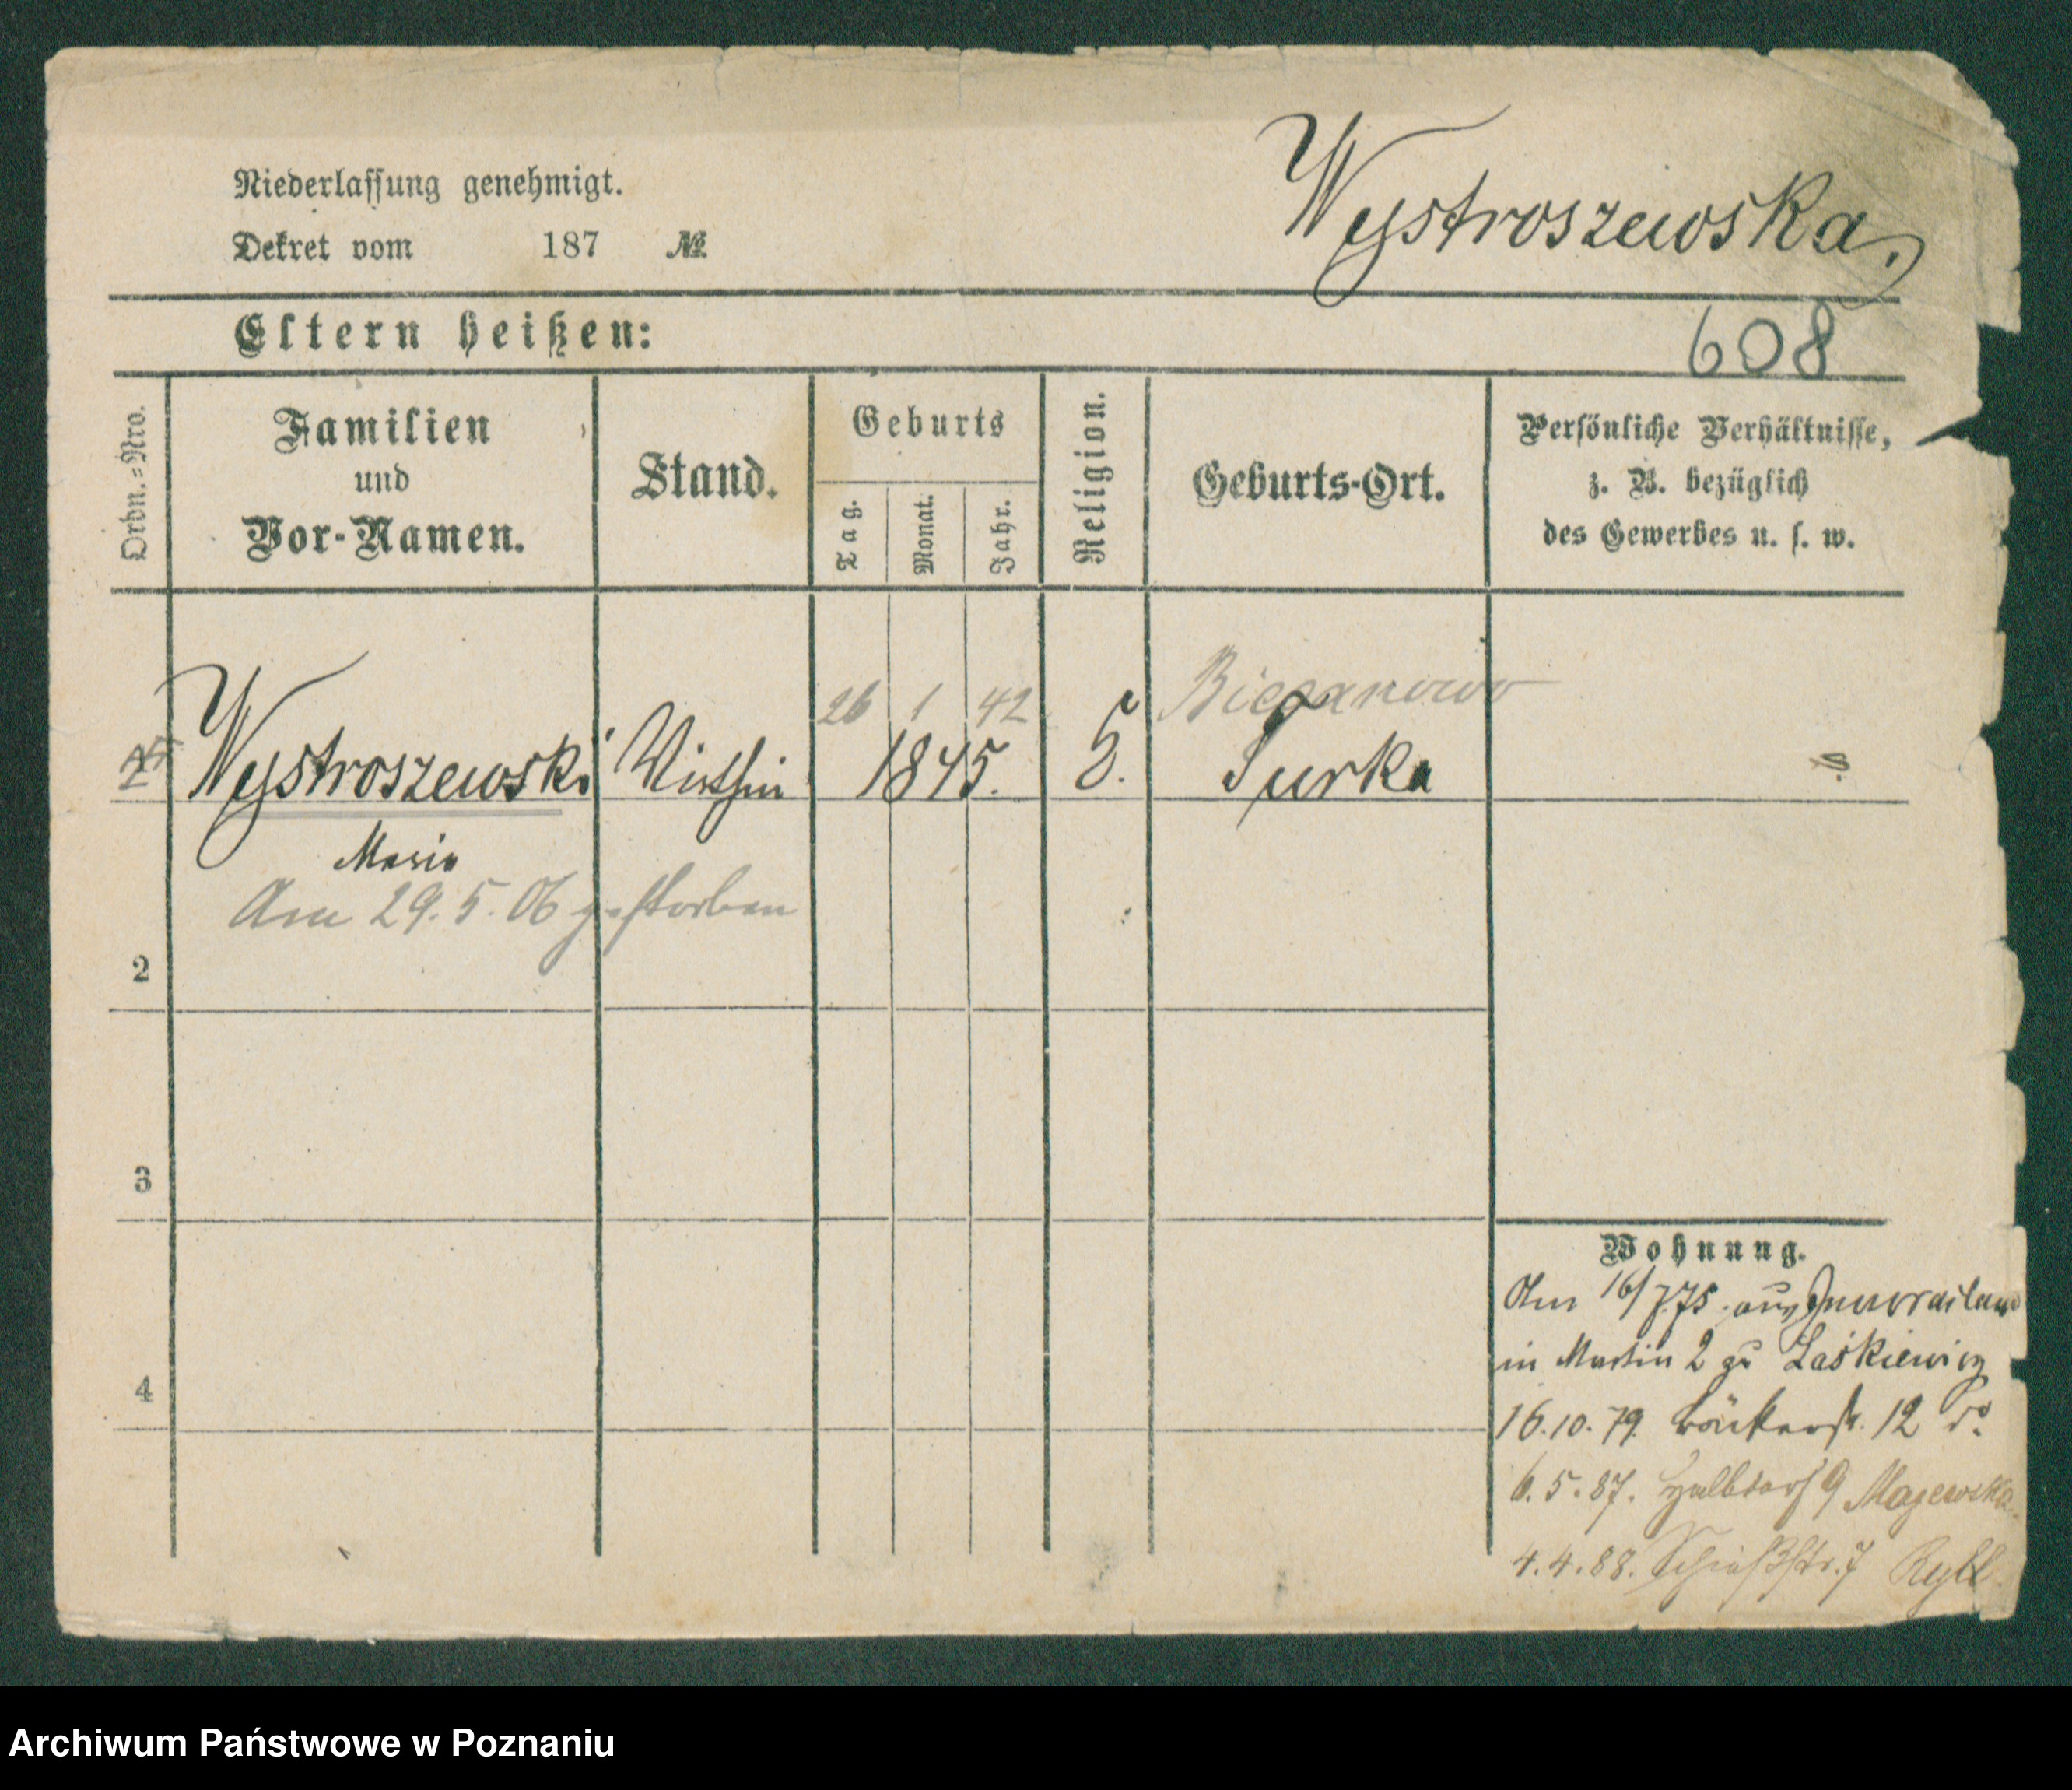 Niederlassung genehmigt.
Dekret vom 187 №
Wystroszewska
608
Eltern heißen:
Ordn.=Nro.
Familien
und
Vor-Namen.
Stand.
Geburts
Tag.
Monat.
Jahr.
Religion.
Geburts-Ort.
Persönliche Verhältnisse,
z. B. bezüglich
des Gewerbes u. s. w.
26 1 42
Wystroszewski Wirthin 1845. Turka
Maria
Am 29.5.06 gestorben
2
3
4
Wohnung.
Am 16/7.75 aus Inowraclaw
in Martin 2 zu Laskiewicz
16.10.79. Bäckerstr. 12 do
6.5.87. Halbdorf 9 Majewska.
4.4.88. Schießstr. 7
Archiwum Państwowe w Poznaniu